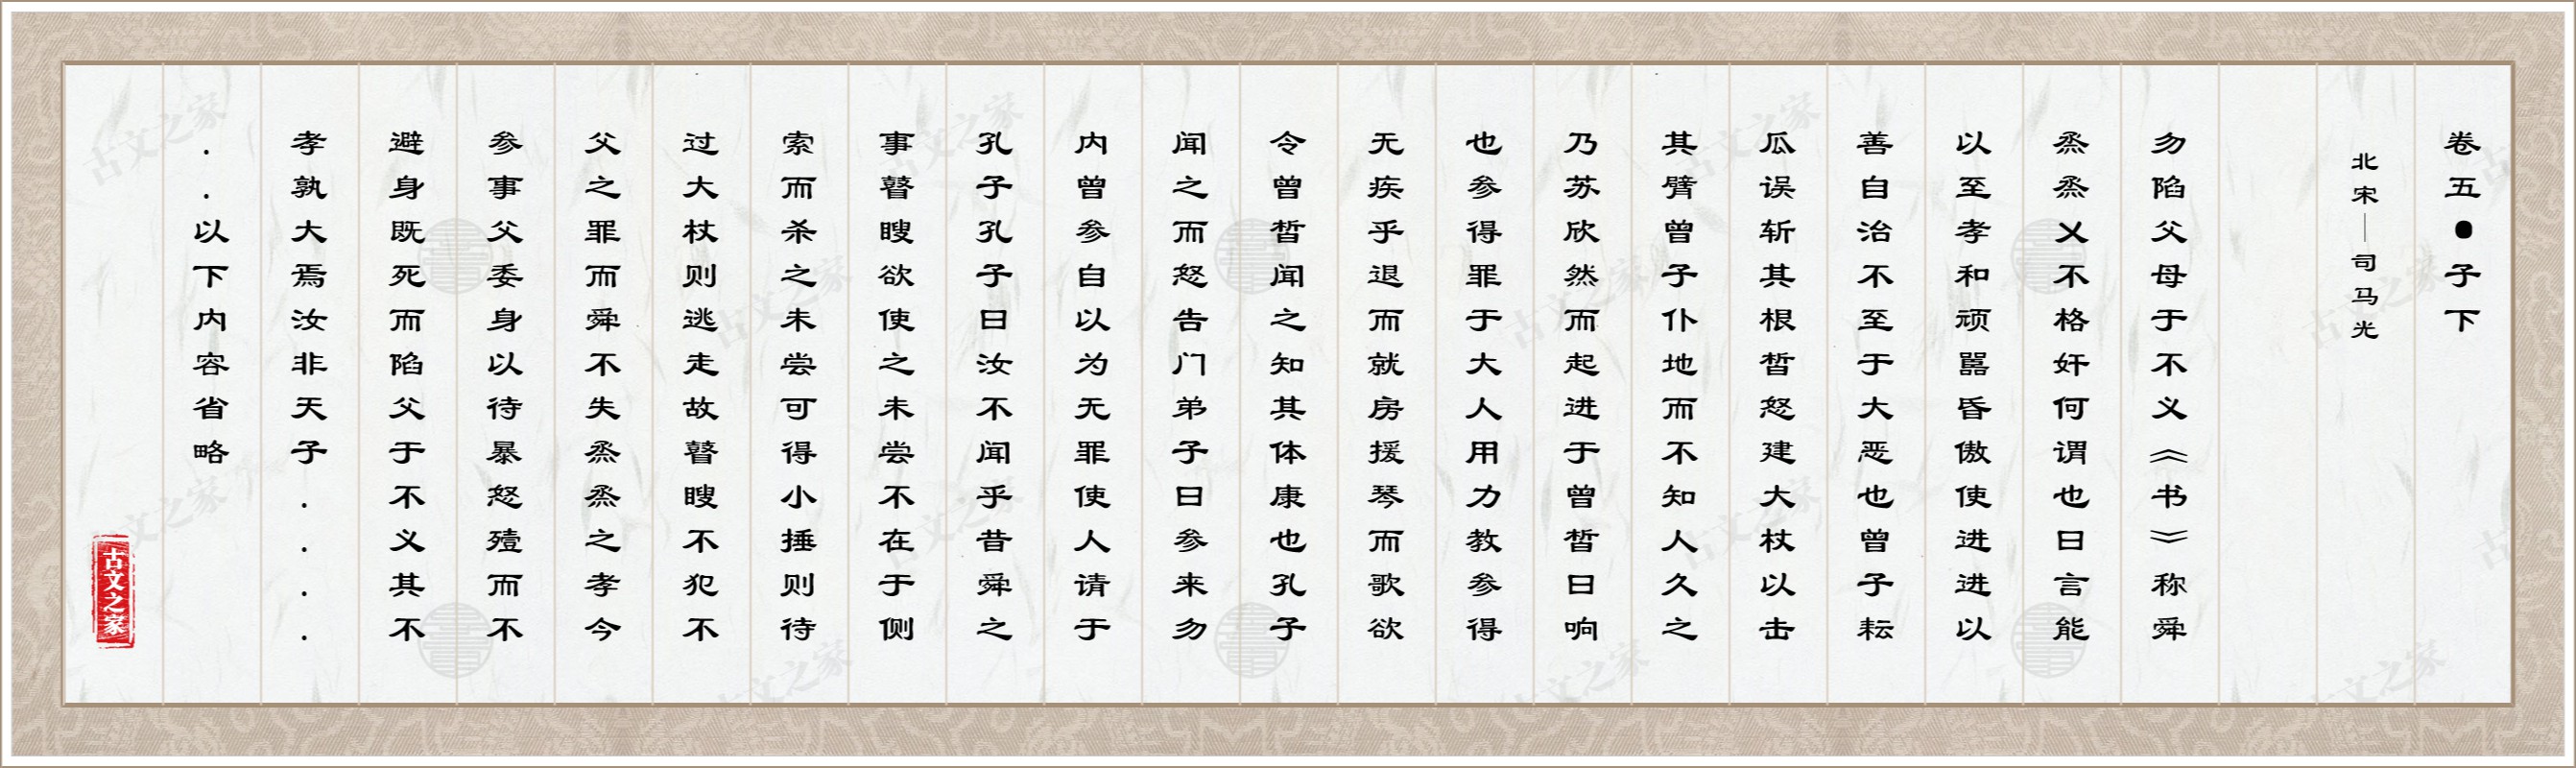 卷五●子下
北宋—司马光
勿陷父母于不义《书》称舜
烝烝乂不格奸何谓也曰言能
以至孝和顽嚚昏傲使进进以
善自治不至于大恶也曾子耘
瓜误斩其根皙怒建大杖以击
其臂曾子仆地而不知人久之
乃苏欣然而起进于曾皙曰响
也参得罪于大人用力教参得
无疾乎退而就房援琴而歌欲
令曾皙闻之知其体康也孔子
闻之而怒告门弟子曰参来勿
内曾参自以为无罪使人请于
孔子孔子曰汝不闻乎昔舜之
事瞽瞍欲使之未尝不在于侧
索而杀之未尝可得小捶则待
过大杖则逃走故瞽瞍不犯不
父之罪而舜不失烝烝之孝今
参事父委身以待暴怒殪而不
避身既死而陷父于不义其不
孝孰大焉汝非天子....
..以下内容省略
古文之家